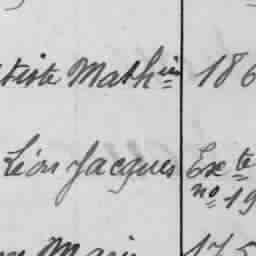 tiste Mathieu 186
Léon Jacques Exte
no 19
Marie 175